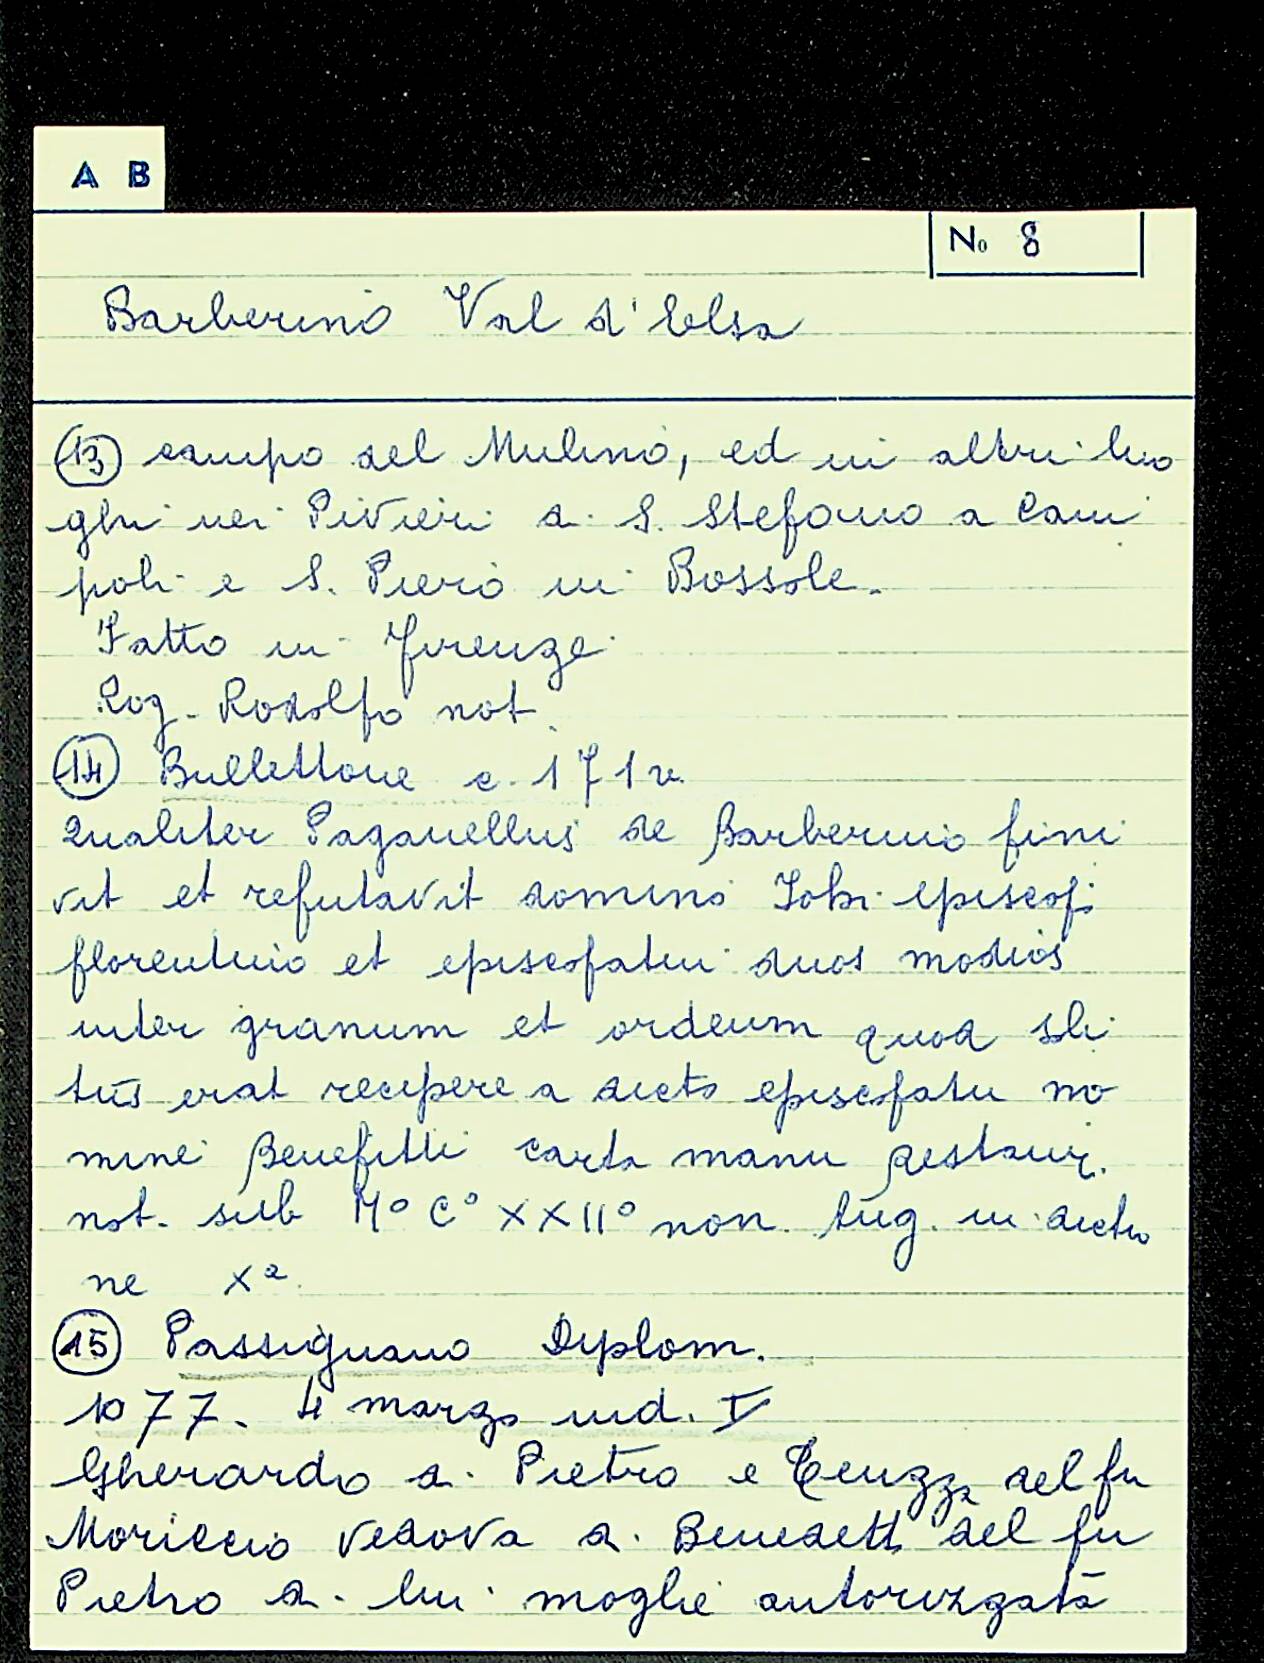 A B
No 8
Barberino Val d'Elsa
13 campo del Mulino, ed in altri luo
ghi nei Pivieri di S. Stefano a Cam
poli e S. Piero in Bossole.
Fatto in Firenze
Rog. Rodolfo not.
14 Bullettone c. 171 v.
Qualiter Paganellus de Barberino fini
vit et refutavit domino Iohi episcopo
florentino et episcopatui duos modios
inter granum et ordeum quod
erat recipere a dicto episcopatu no
mine carta manu
not. sub M° C° XXII° non. Aug. indictio
ne Xa.
15 Passignano Diplom.
1077. 4 marzo ind. V
Gherardo di Pietro e Teuzza del fu
Moriccio vedova di Benedetto del fu
Pietro di lui moglie autorizzata